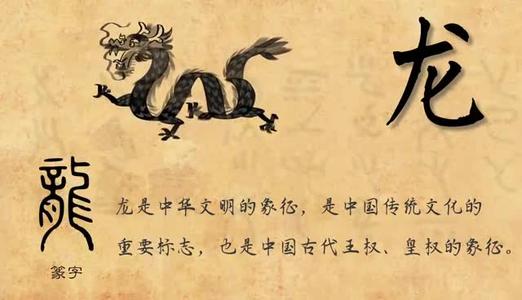 龙
龍
龙是中华文明的象征，是中国传统文化的
重要标志，也是中国古代王权、皇权的象征。
篆字